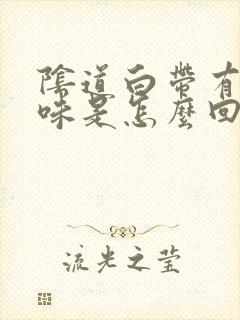 陰道白帶有
味是怎麼回
流光之莹